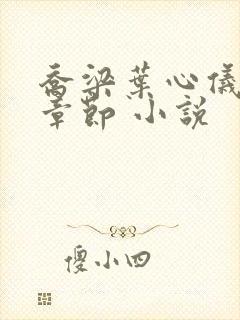 乔梁葉心儀
章節 小說
傻小四